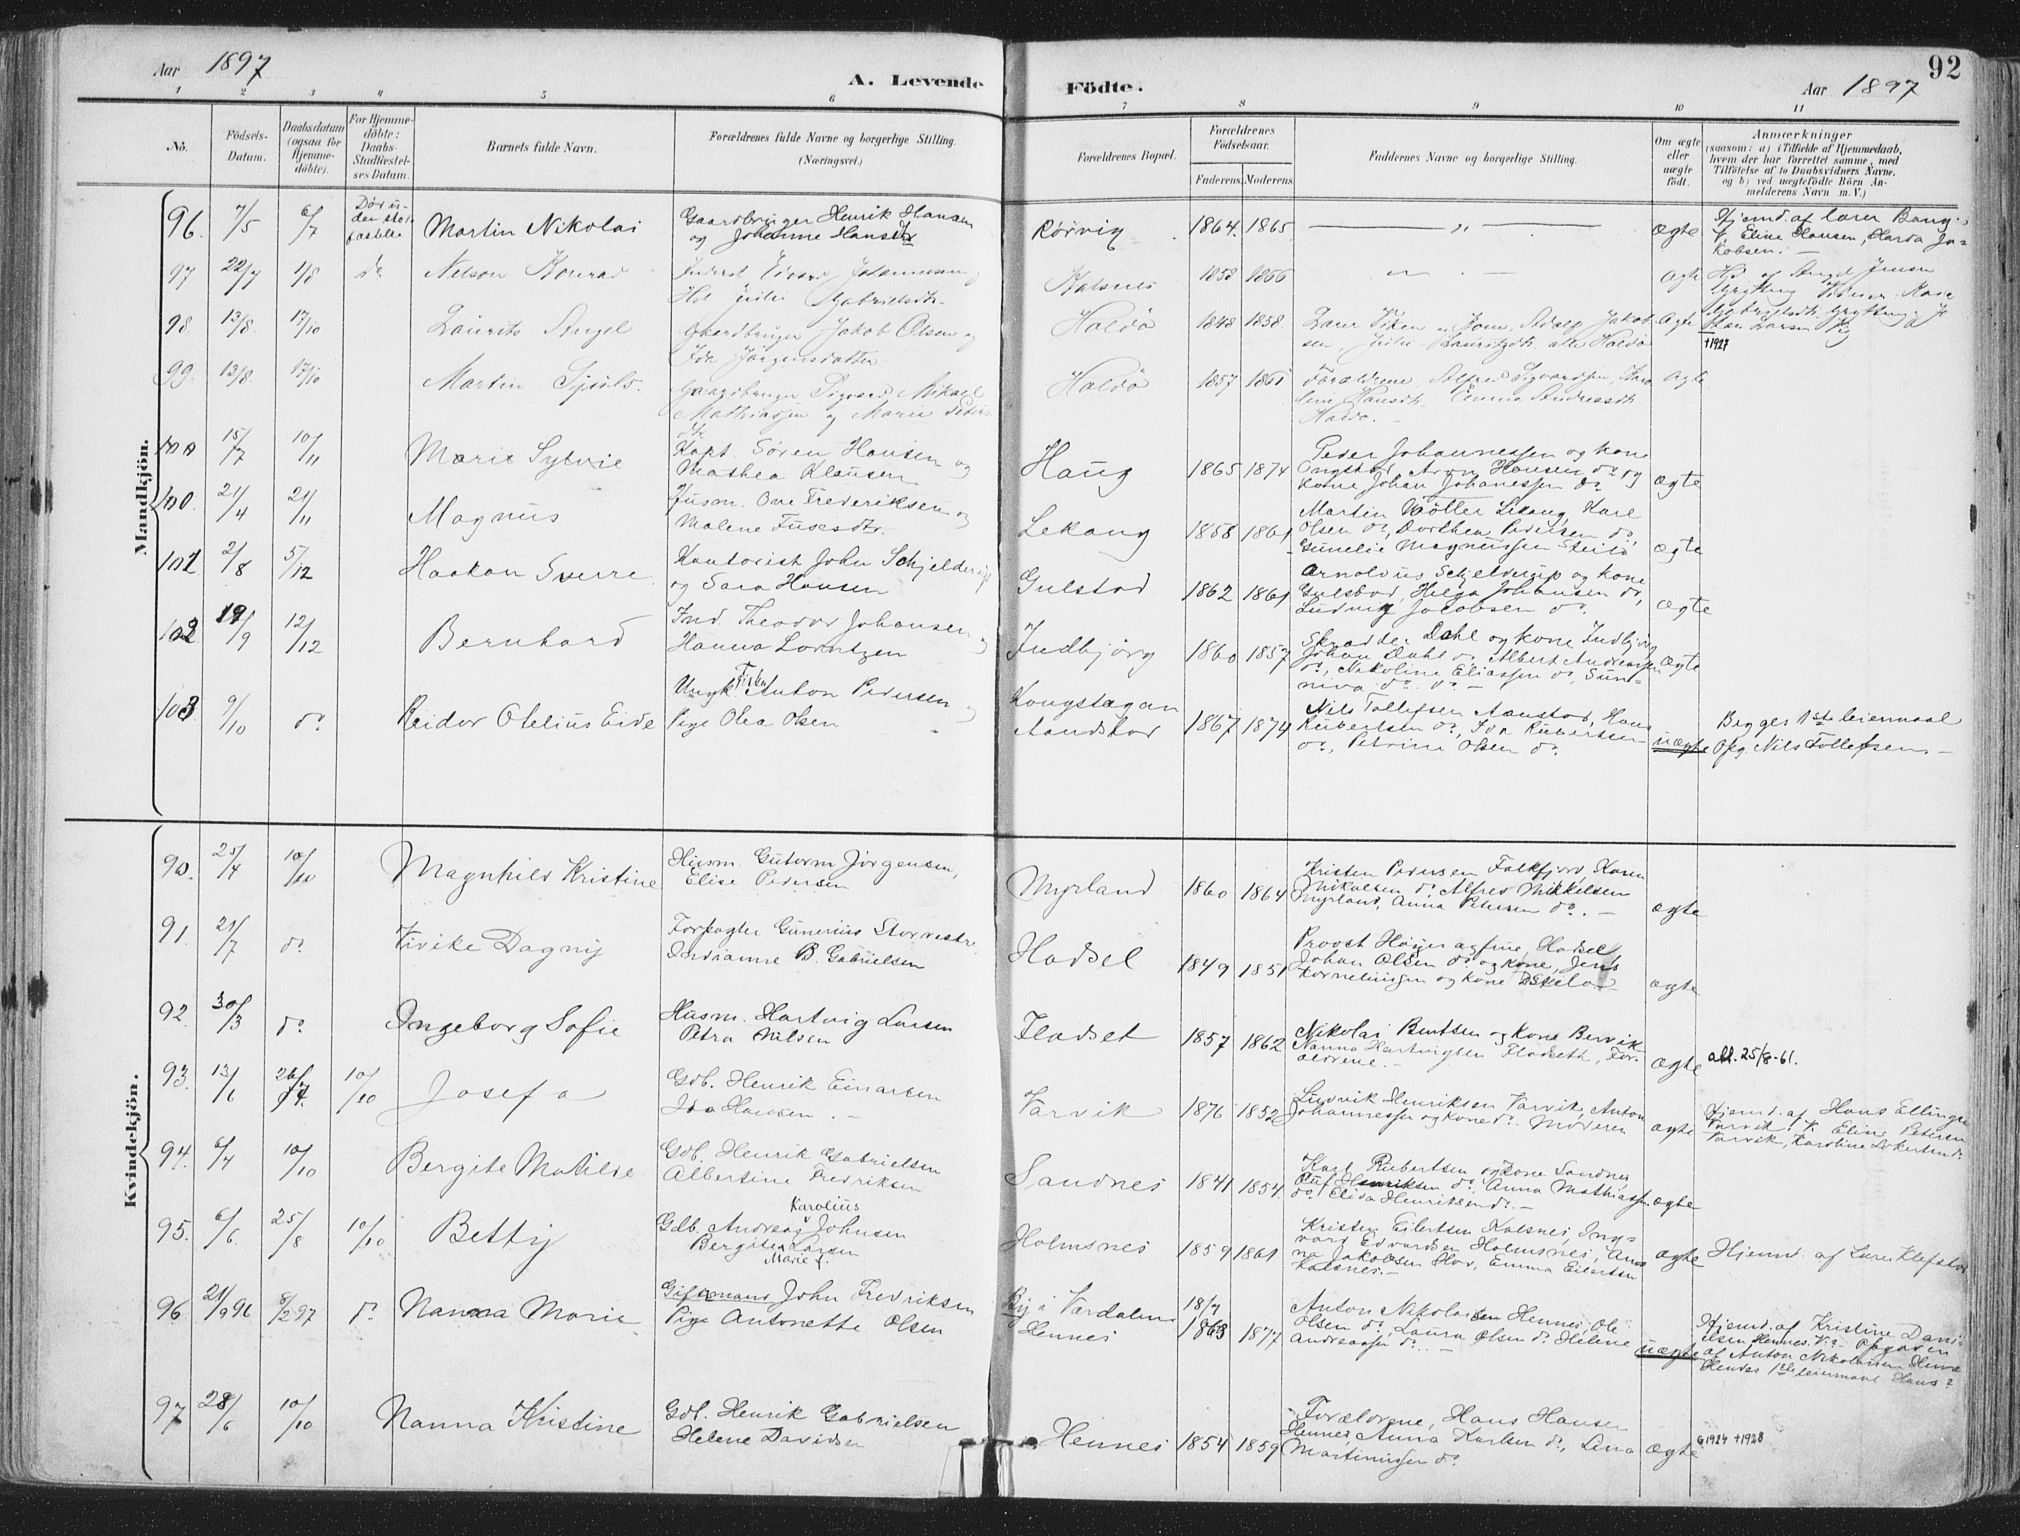 Aar 1897
A. Levende
Födte.
Aar 1897
92
1 2 3 4 5 6 7 8 9 10 11
No.
Födsels-
Datum.
Daabsdatum
(ogsaa for
Hjemme-
döbte).
For Hjemme-
döbte:
Daabs-
Stadfæstel-
ses Datum.
Barnets fulde Navn.
Forældrenes fulde Navne og borgerlige Stilling.
(Næringsvei.)
Forældrenes Bopæl.
Forældrenes
Födselsaar.
Faderens. Moderens.
Faddernes Navne og borgerlige Stilling.
Om ægte
eller
uægte
födt.
Anmærkninger
(saasom: a) i Tilfælde af Hjemmedaab,
hvem der har forrettet samme, med
Tilföielse af to Daabsvidners Navne,
og b) ved uægtefödte Börn An-
melderens Navn m. V.)
Mandkjön.
96. 7/5 6/7 Martin Nikolai Gaardbruger Henrik Hansen
og Johanne Hansen Rørvig 1864. 1865. ægte Hjemd. af lærer Bang.
V. Eline Hansen, Ja-
kobsen.
97 22/7 1/8 do Nelson Konrad Johannesen
Gabrielsdtr. Kalsnes 1858 1866 ægte
98. 13/8. 17/10 Laurits Angel Gaardbruger Jakob Olsen og
Ida Jörgensdatter Haldö 1848 1858. ægte
†1927
99. 13/8 17/10 Martin Sjuls. Gaardbruger Sigvard Mikael
Mathiasen og Marie Haldö 1857 1861 Forældrene, Alfred Sigvardsen,
Hansdtr. Emma Andreasdtr.
Haldö. ægte
15/7 10/11 Marie Sylvie Kapt. Søren Hansen og
Mathea Klausen Haug 1865 1874 Peder Johannessen og kone
Ongstad, Hansen do og
kone Johan Johanessen do. ægte
100. 21/4 21/11 Magnus Husm. Ove Frederiksen og
Malene Lekang 1858 1861 Martin Lekang, Karl
Olsen do, Dorthea Pedersen do,
Gunelie Magnussen ægte
101 2/8 5/12 Haakon Sverre Kontorist John Schjelderup
og Sara Hansen Gulstad 1862 1861 Arnoldus Schjelderup og kone
Gulstad, Helga Johansen do,
Ludvig Jacobsen do. ægte
102 19/9 12/12 Bernhard Ind. Theodor Johansen og
Hanna Lorntzen Indbjörg 1860 1857 Skrædder Dahl og kone Indbjörg
Johan Dahl do, Albert Andreassen
do, Nikoline Eliassen do, Sun-
niva do. do. ægte
103 9/10 do Reidar Otelius Eide Ungk. Fisker Anton Pedersen og
Pige Olea Olsen Kongstagan
Sandskar 1867 1874 Nils Tollefsen Aanstad, Hans
Rubertsen do, Ida Rubertsen
do, Petrine Olsen do. uægte Begges 1ste leiermaal
Opg. Nils Tollefsen.
Kvindekjön.
90. 25/4 10/10 Magnhild Kristine Husm. Gutorm Jörgensen,
Elise Pedersen Myrland 1860 1864 Kristen Pedersen Falkfjord, Karen
Nikolsen do Alfred Mikkelsen
Myrland, Anna Petersen do. ægte
91. 21/7 do. Vivike Dagny Forpagter Gunerius
Indianne B. Gabrielsen Hadsel 1849 1851 Provst og frue, Hadsel
Johan Olsen do og kone, Jens
Korneliussen og kone ægte
92. 30/3 do Ingeborg Sofie Husm. Hartvig Larsen
Petra Nilsen Fladset 1857 1862 Nikolai Bentsen og kone Bervik
Nanna Hartvigsen Fladseth, For-
ældrene. ægte att. 25/8-61.
93. 13/1 10/10 Josefa Gdb. Henrik Einarsen
Ida Hansen Varvik 1876 1852 Ludvik Henriksen Varvik, Anton
Johannessen og kone do. Moderen ægte Hjemd. af Hans Ellingsen
Varvik. V. Eline Petersen
Varvik, Karoline
94. 6/4 10/10 Bergite Matilde Gdb. Henrik Gabrielsen
Albertine Fredriksen Sandnes 1841 1854. Karl Rubertsen og kone Sandnes,
Henriksen do, Anna Mathiassen
do, Elida Henriksen do. ægte
95. 6/6. 25/8 10/10 Betty Gdb. Andreas Karolius Johnsen
Bergite Marie Larsen Holmsnes 1859 1861 Kristen Eilertsen Kalsnes, Ing-
vard Edvardsen Holmsnes, An-
na Jakobsen Hov, Emma Eilertsen
Kalsnes. ægte Hjemd. af Lærer Klefstad
96 21/9 96 8/2 97 do Nanna Marie Gift mand John Fredriksen
Pige Antonette Olsen By i Værdalen
Hennes 18/7
1863 1877 Anton Nikolaisen Hennes, Ole
Olsen do, Laura Olsen do, Helene
Andreassen do. uægte Hjemd. af Kristine Dani-
elsen Hennes. Opgaven
af Anton Nikolaisen Hennes
Hendes 1ste leiermaal. Hans ?
97 28/6 10/10 Nanna Kristine Gdb. Henrik Gabrielsen
Helene Davidsen Hennes 1854 1859 Forældrene, Hans Hansen
Hennes Anna Karlsen do, Lina
Martinussen do. ægte G1924 †1928